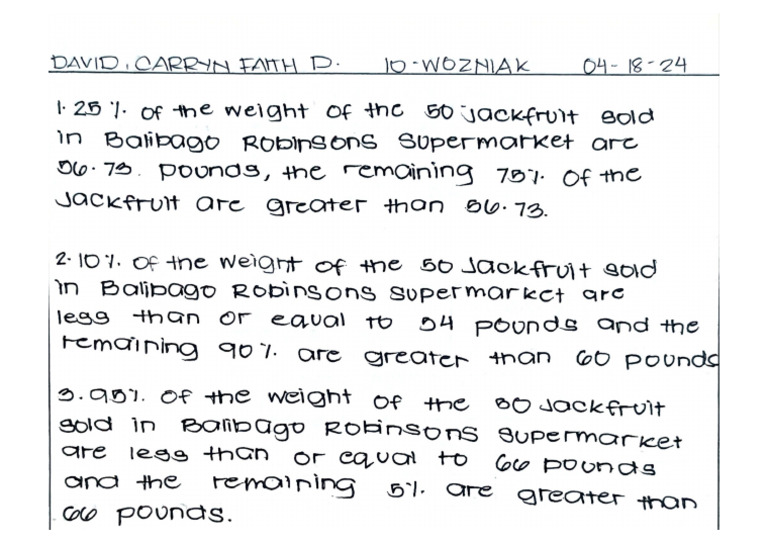 DAVID, CARRYN FAITH D. 10-WOZNIAK 04-18-24
1. 25% of the weight of the 50 jackfruit sold
in Balibago Robinsons Supermarket are
56.73. pounds, the remaining 75% of the
Jackfruit are greater than 56.73.
2. 10% of the weight of the 50 Jackfruit sold
in Balibago Robinsons supermarket are
less than or equal to 54 pounds and the
remaining 90% are greater than 60 pounds
3. 95% of the weight of the 50 Jackfruit
sold in Balibago Robinsons supermarket
are less than or equal to 66 pounds
and the remaining 5% are greater than
66 pounds.